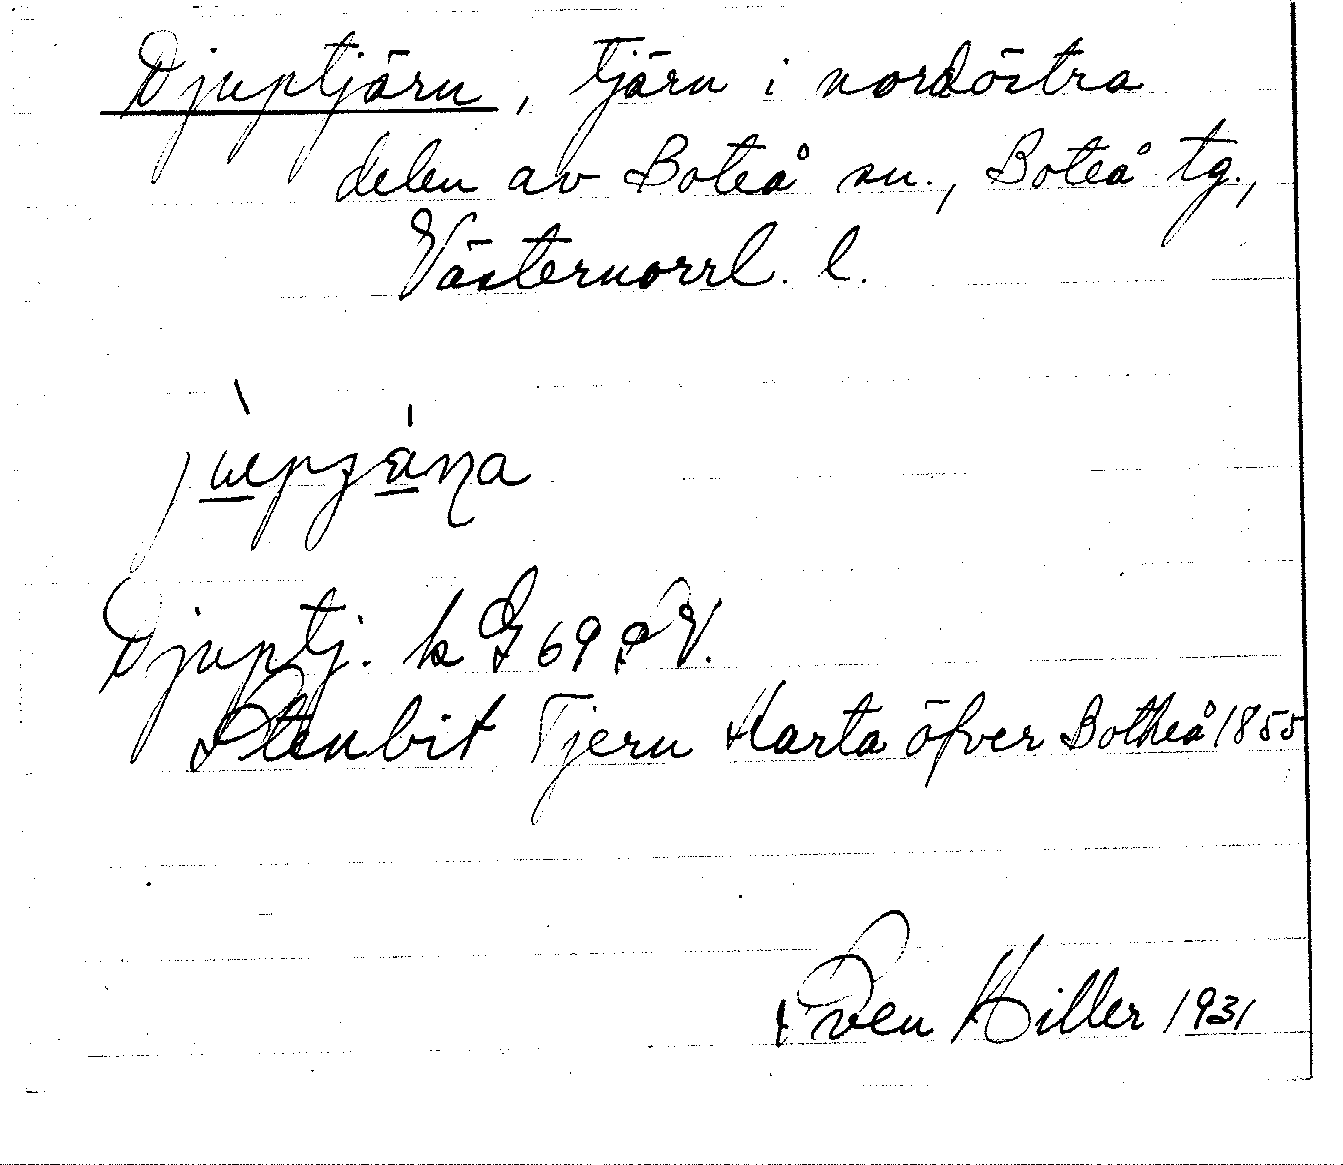 Djuptjärn, tjärn i nordöstra
delen av Boteå sn., Boteå tg.,
Västernorrl. l.
Djuptj. k G 69 SV.
Stenbit Tjern Karta öfver Botheå 1855
Sven Hiller 1931